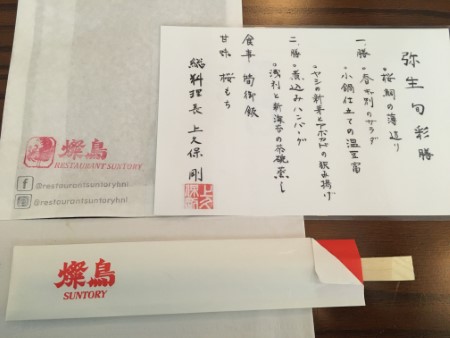 弥生旬彩膳
・桜鯛の薄造り
一、膳 ・春 のサラダ
・小鍋仕立ての温豆富
・ヤシの新芽とアボカドの 揚げ
二、膳 ・煮込みハンバーグ
・浅利と新海苔の茶碗蒸し
食事 筍御飯
甘味 桜もち
総料理長 上久保 剛
燦鳥
RESTAURANT SUNTORY
@restaurantsuntoryhnl
@restaurantsuntoryhnl
燦鳥
SUNTORY